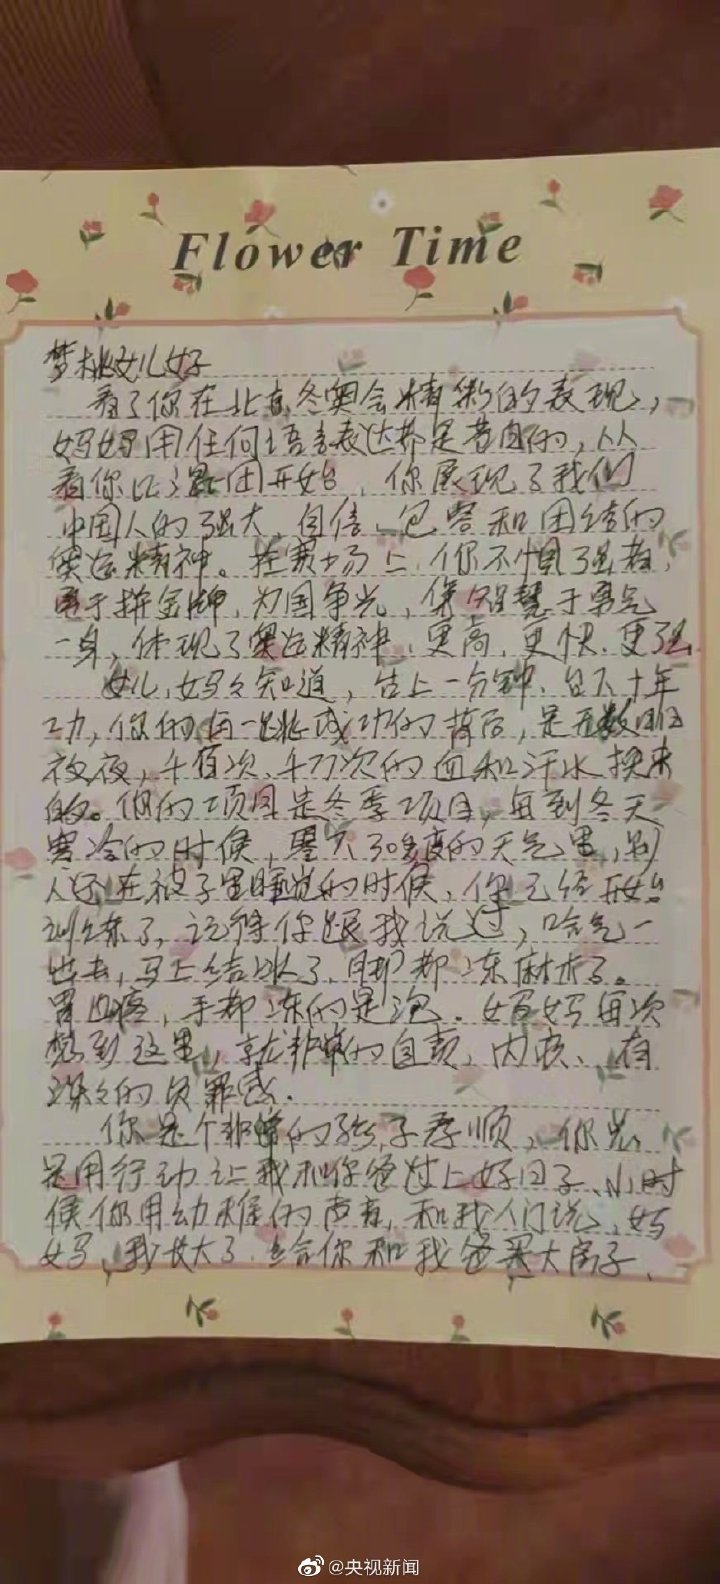 Flower Time
梦桃女儿好
看了你在北京冬奥会精彩的表现,
妈妈用任何语言表达都是苍白的,从
看你比混团开始,你展现了我们
中国人的强大、自信、包容和团结的
奥运精神。在赛场上,你不惧强者,
勇于拼金牌,为国争光,集智慧于勇气
一身,体现了奥运精神,更高、更快、更强
女儿,妈妈知道,台上一分钟、台下十年
功,你的每一跳成功的背后,是无数个日日
夜夜,千百次、千万次的血和汗水换来
的。你的项目是冬季项目,每到冬天
寒冷的时候,零下30多度的天气里,别
人还在被子里睡觉的时候,你已经开始
训练了,记得你跟我说过,哈气一
出去,马上结冰了,脚都冻麻木了。
胃也疼,手都冻的是泡。妈妈每次
想到这里,就非常的自责、内疚、有
深深的负罪感.
你是个非常的孩子孝顺,你总
是用行动让我和你爸过上好日子、小时
候你用幼稚的声音,和我们说,妈
妈,我长大了,给你和我爸买大房子、
@央视新闻